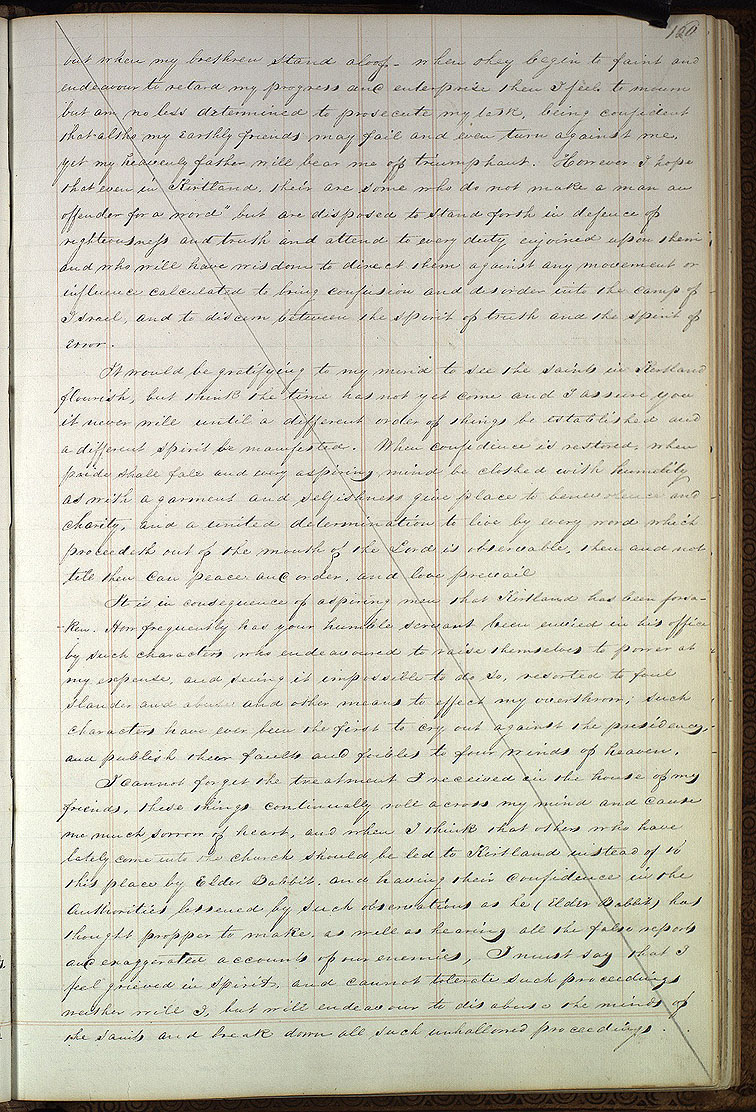 120
but when my brethren stand aloof— when they begin to faint and
endeavour to retard my progress and enterprise then I feel to mourn
but am no less determined to prosecute my task, being confident
that altho my earthly friends may fail and even turn against me,
yet my heavenly father will bear me off triumphant. However I hope
that even in Kirtland, their are some who do not make a man an
offender for a word" but are disposed to stand forth in defence of
righteousness and truth and attend to every duty enjoined upon them
and who will have wisdom to direct them against any movement or
influence calculated to bring confusion and disorder into the camp of
Israel, and to discern between the spirit of truth and the spirit of
error.
It would be gratifying to my mind to see the saints in Kirtland
flourish, but think the time has not yet come and I assure you
it never will until a different order of things be established and
a different spirit be manifested. When confidence is restored, when
pride shall fall and every aspiring mind be clothed with humility
as with a garment and selfishness give place to benevolence and
charity, and a united determination to live by every word which
proceedeth out of the mouth of the Lord is observable, then and not
till then can peace and order, and love prevail
It is in consequence of aspiring men that Kirtland has been forsa-
-ken. How frequently has your humble servant been envied in his office
by such characters who endeavoured to raise themselves to power at
my expense, and seeing it impossible to do so, resorted to foul
slander and abuse and other means to effect my overthrow; such
characters have ever been the first to cry out against the presidency,
and publish their faults and foibles to four winds of heaven.
I cannot forget the treatment I received in the house of my
friends, these things continually roll across my mind and cause
me much sorrow of heart, and when I think that others who have
lately come into the church should be led to Kirtland instead of to
this place by Elder Babbit, and having their confidence in the
Authorities lessened by such observations as he (Elder Babbit) has
thought propper to make, as well as hearing all the false reports
and exaggerated accounts of our enemies, I must say that I
feel grieved in spirit, and cannot tolerate such proceedings
neither will I, but will endeavour to disabuse the minds of
the saints and break down all such unhallowed proceedings.